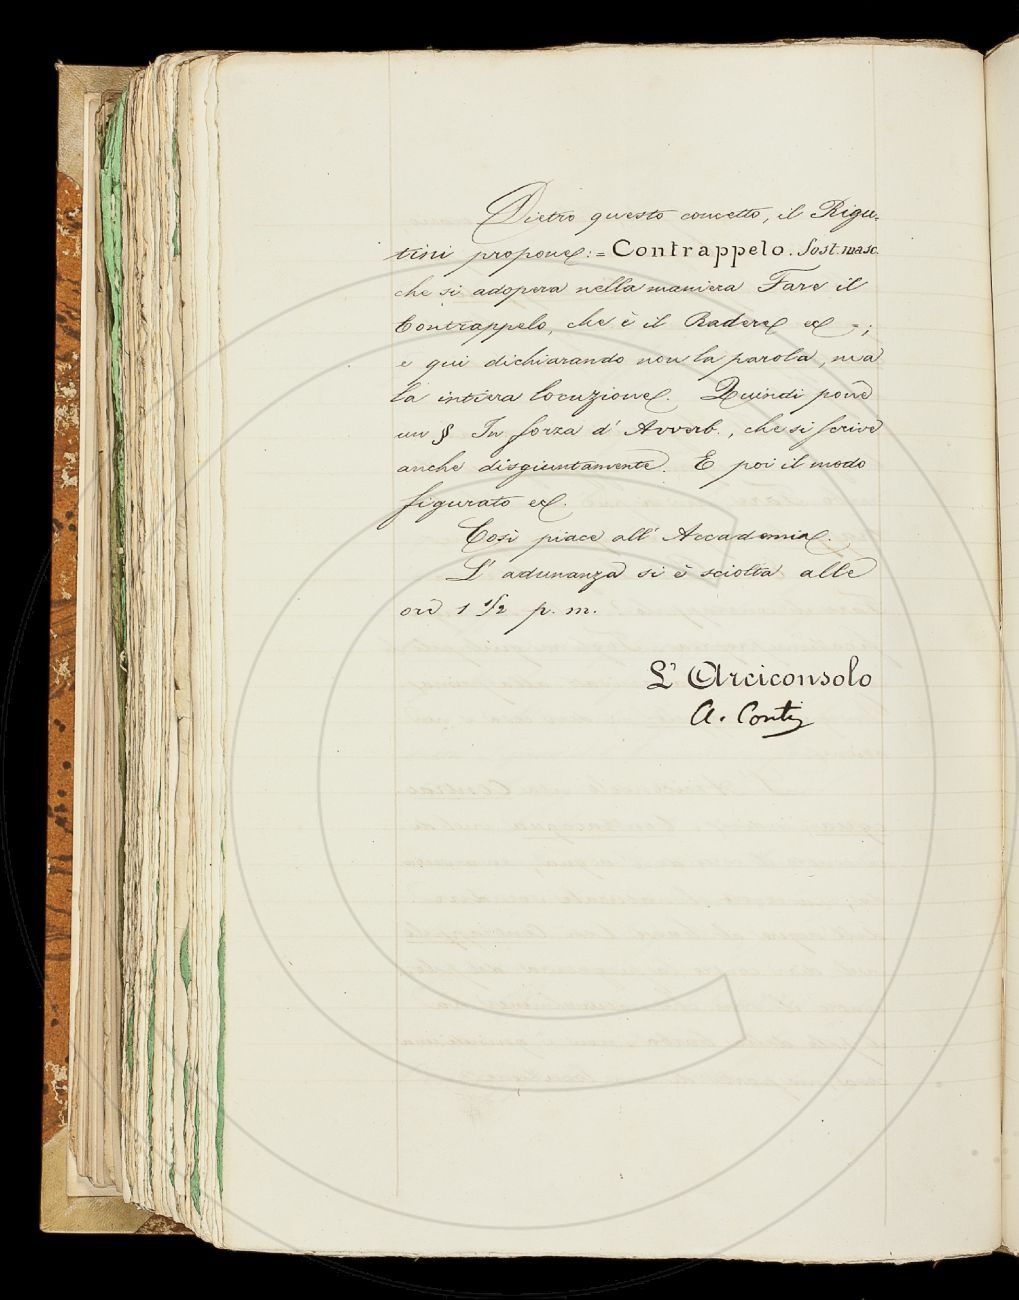 Dietro questo concetto, il Rigu-
tini propone: = Contrappelo. Sost. masc.
che si adopera nella maniera Fare il
Contrappelo, che è il Radere ec =;
e qui dichiarando non la parola, ma
la intiera locuzione. Quindi pone
un § In forza d' Avverb., che si scrive
anche disgiuntamente. E poi il modo
figurato ec.
Così piace all' Accademia.
L' adunanza si è sciolta alle
ore 1 1/2 p. m.
L' Arciconsolo
A. Conti